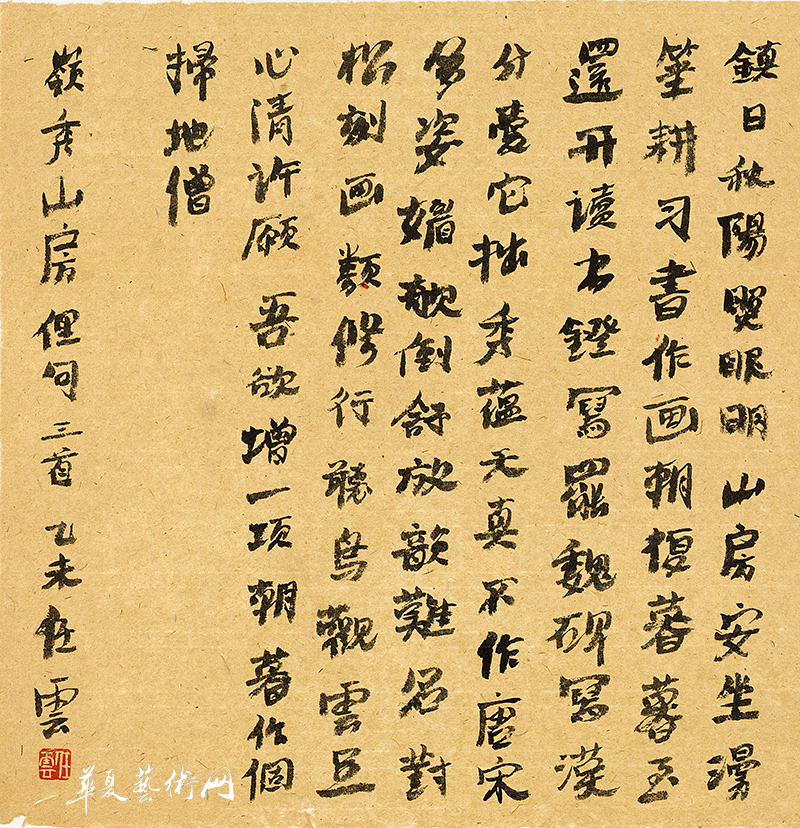 鎮日秋陽眼明山房安坐漫
筆耕习書作画朝復暮暮至
還开读书鐙寫罷魏碑寫漢
分愛它拙秀蕴天真不作唐宋
多姿媚欹倒舒放韻難名對
松刻画類修行聽鸟觀雲
心清许願吾欲增一项朝暮作個
掃地僧
嶺秀山房俚句三首乙未任雲
任雲
華夏藝術网